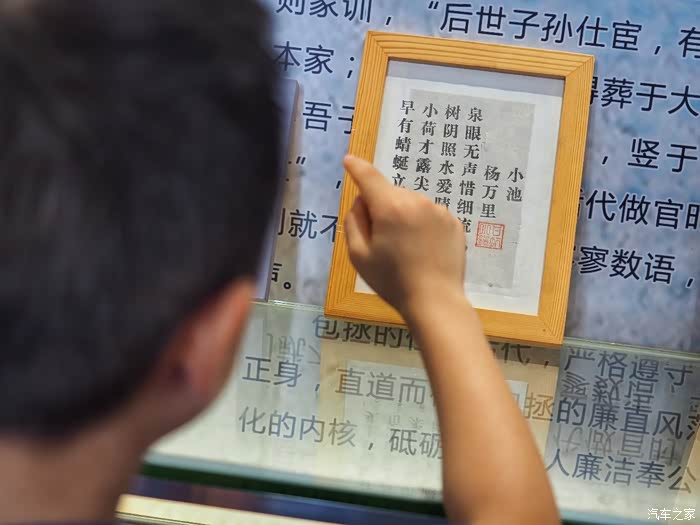 则家训，“后世子孙仕宦，有
本家；
得葬于大
吾子
，竖于
代做官
则就不
寥寥数语，
小池
杨万里
泉眼无声惜细流
树阴照水爱晴
小荷才露尖
早有蜻蜓立
包拯的
代，严格遵守
正身，直道而
拯的廉直风
化的内核，砥砺
人廉洁奉公
汽车之家